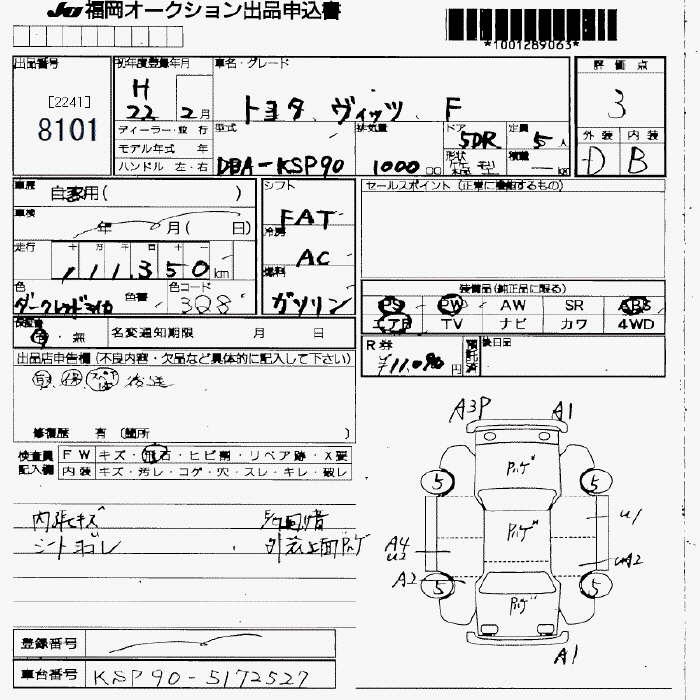 JU 福岡オークション出品申込書
*1001289063*
出品番号 初年度登録年月 車名・グレード 評価点
[2241]
8101
H 22 2月
トヨタ ヴィッツ F
3
ディーラー・並行 型式 排気量 ドア 定員 外装 内装
モデル年式 年 5DR 5人
ハンドル 左・右 DBA-KSP90 1000 cc 形状 積載 kg D B
車歴 自家用( ) シフト セールスポイント(正常に機能するもの)
FAT
車検 年 月( 日) 冷房
AC
走行 十 万 千 百 十 一
111,350 km 燃料
色 色番 色コード ガソリン
ダークレッドマイカ 3Q8
装備品(純正品に限る)
PS PW AW SR ABS
エアB TV ナビ カワ 4WD
保証書 有・無 名変通知期限 月 日
R券 ¥11,090円 預託済 後日品
出品店申告欄(不良内容・欠品など具体的に記入して下さい)
取 保 スペアキー 後送
修復歴 有 〔箇所 〕
検査員 FW キズ・飛石・ヒビ割・リペア跡・X要
記入欄 内装 キズ・汚レ・コゲ・穴・スレ・キレ・破レ
内張キズ
シートヨゴレ 外装上面ハゲ
A3P A1
ハゲ
5 5
ハゲ U1
A4
U2 UA2
A2 5 5
ハゲ
A1
登録番号
車台番号 KSP90-5172527